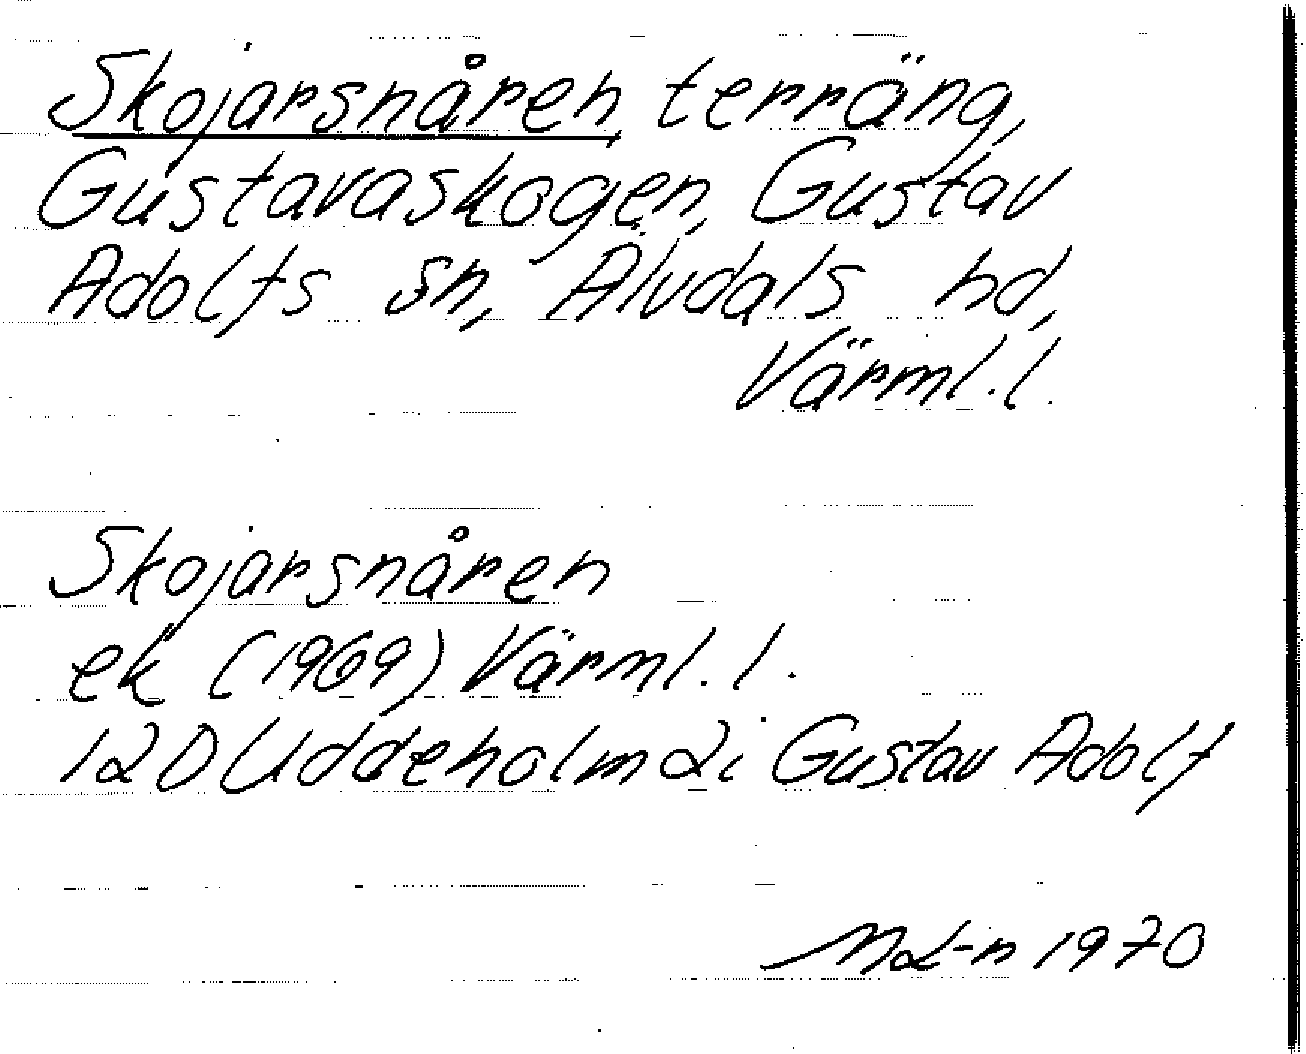 Skojarsnåren terräng,
Gustavaskogen, Gustav
Adolfs sn, Älvdals hd,
Värml. l.
Skojarsnåren
ek (1969) Värml. l.
12D Uddeholm 2i Gustav Adolf
1970